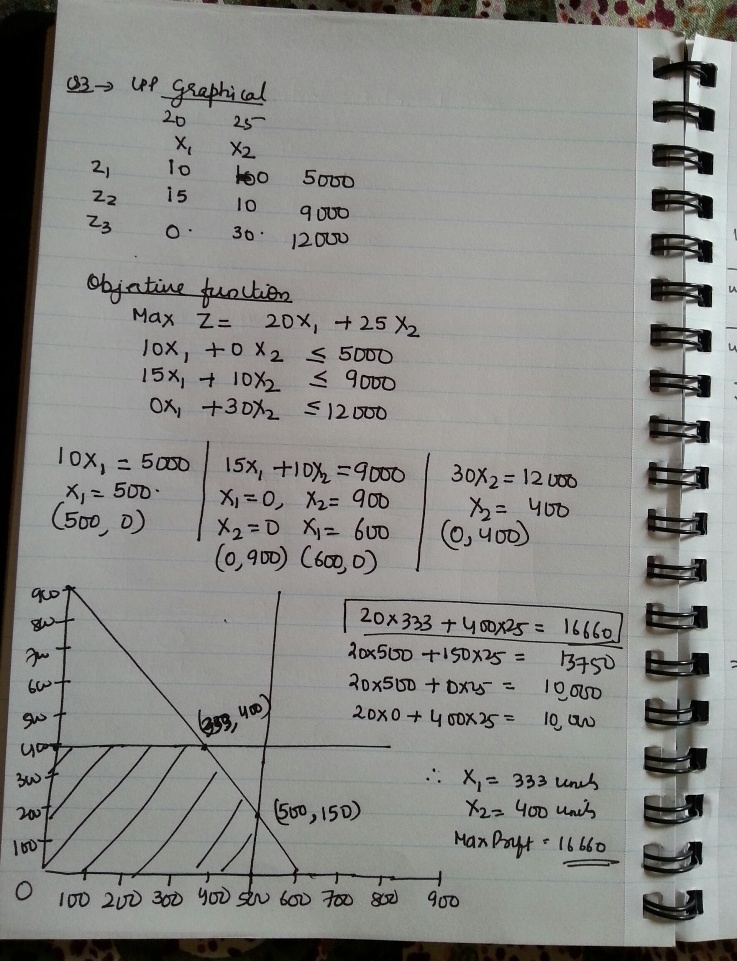 Q3→ LPP Graphical
20 25
X₁ X₂
Z₁ 10 0 5000
Z₂ 15 10 9000
Z₃ 0 30 12000
Objective function
Max Z = 20X₁ + 25X₂
10X₁ + 0X₂ ≤ 5000
15X₁ + 10X₂ ≤ 9000
0X₁ + 30X₂ ≤ 12000
10X₁ = 5000
X₁ = 500
(500, 0)
15X₁ + 10X₂ = 9000
X₁=0, X₂= 900
X₂=0 X₁= 600
(0,900) (600,0)
30X₂ = 12000
X₂ = 400
(0,400)
900
800
700
600
500
400
300
200
100
0 100 200 300 400 500 600 700 800 900
(333, 400)
(500, 150)
20x333 + 400x25 = 16660
20x500 + 150x25 = 13750
20x500 + 0x25 = 10,000
20x0 + 400x25 = 10,000
∴ X₁ = 333 units
X₂ = 400 units
Max Profit = 16660